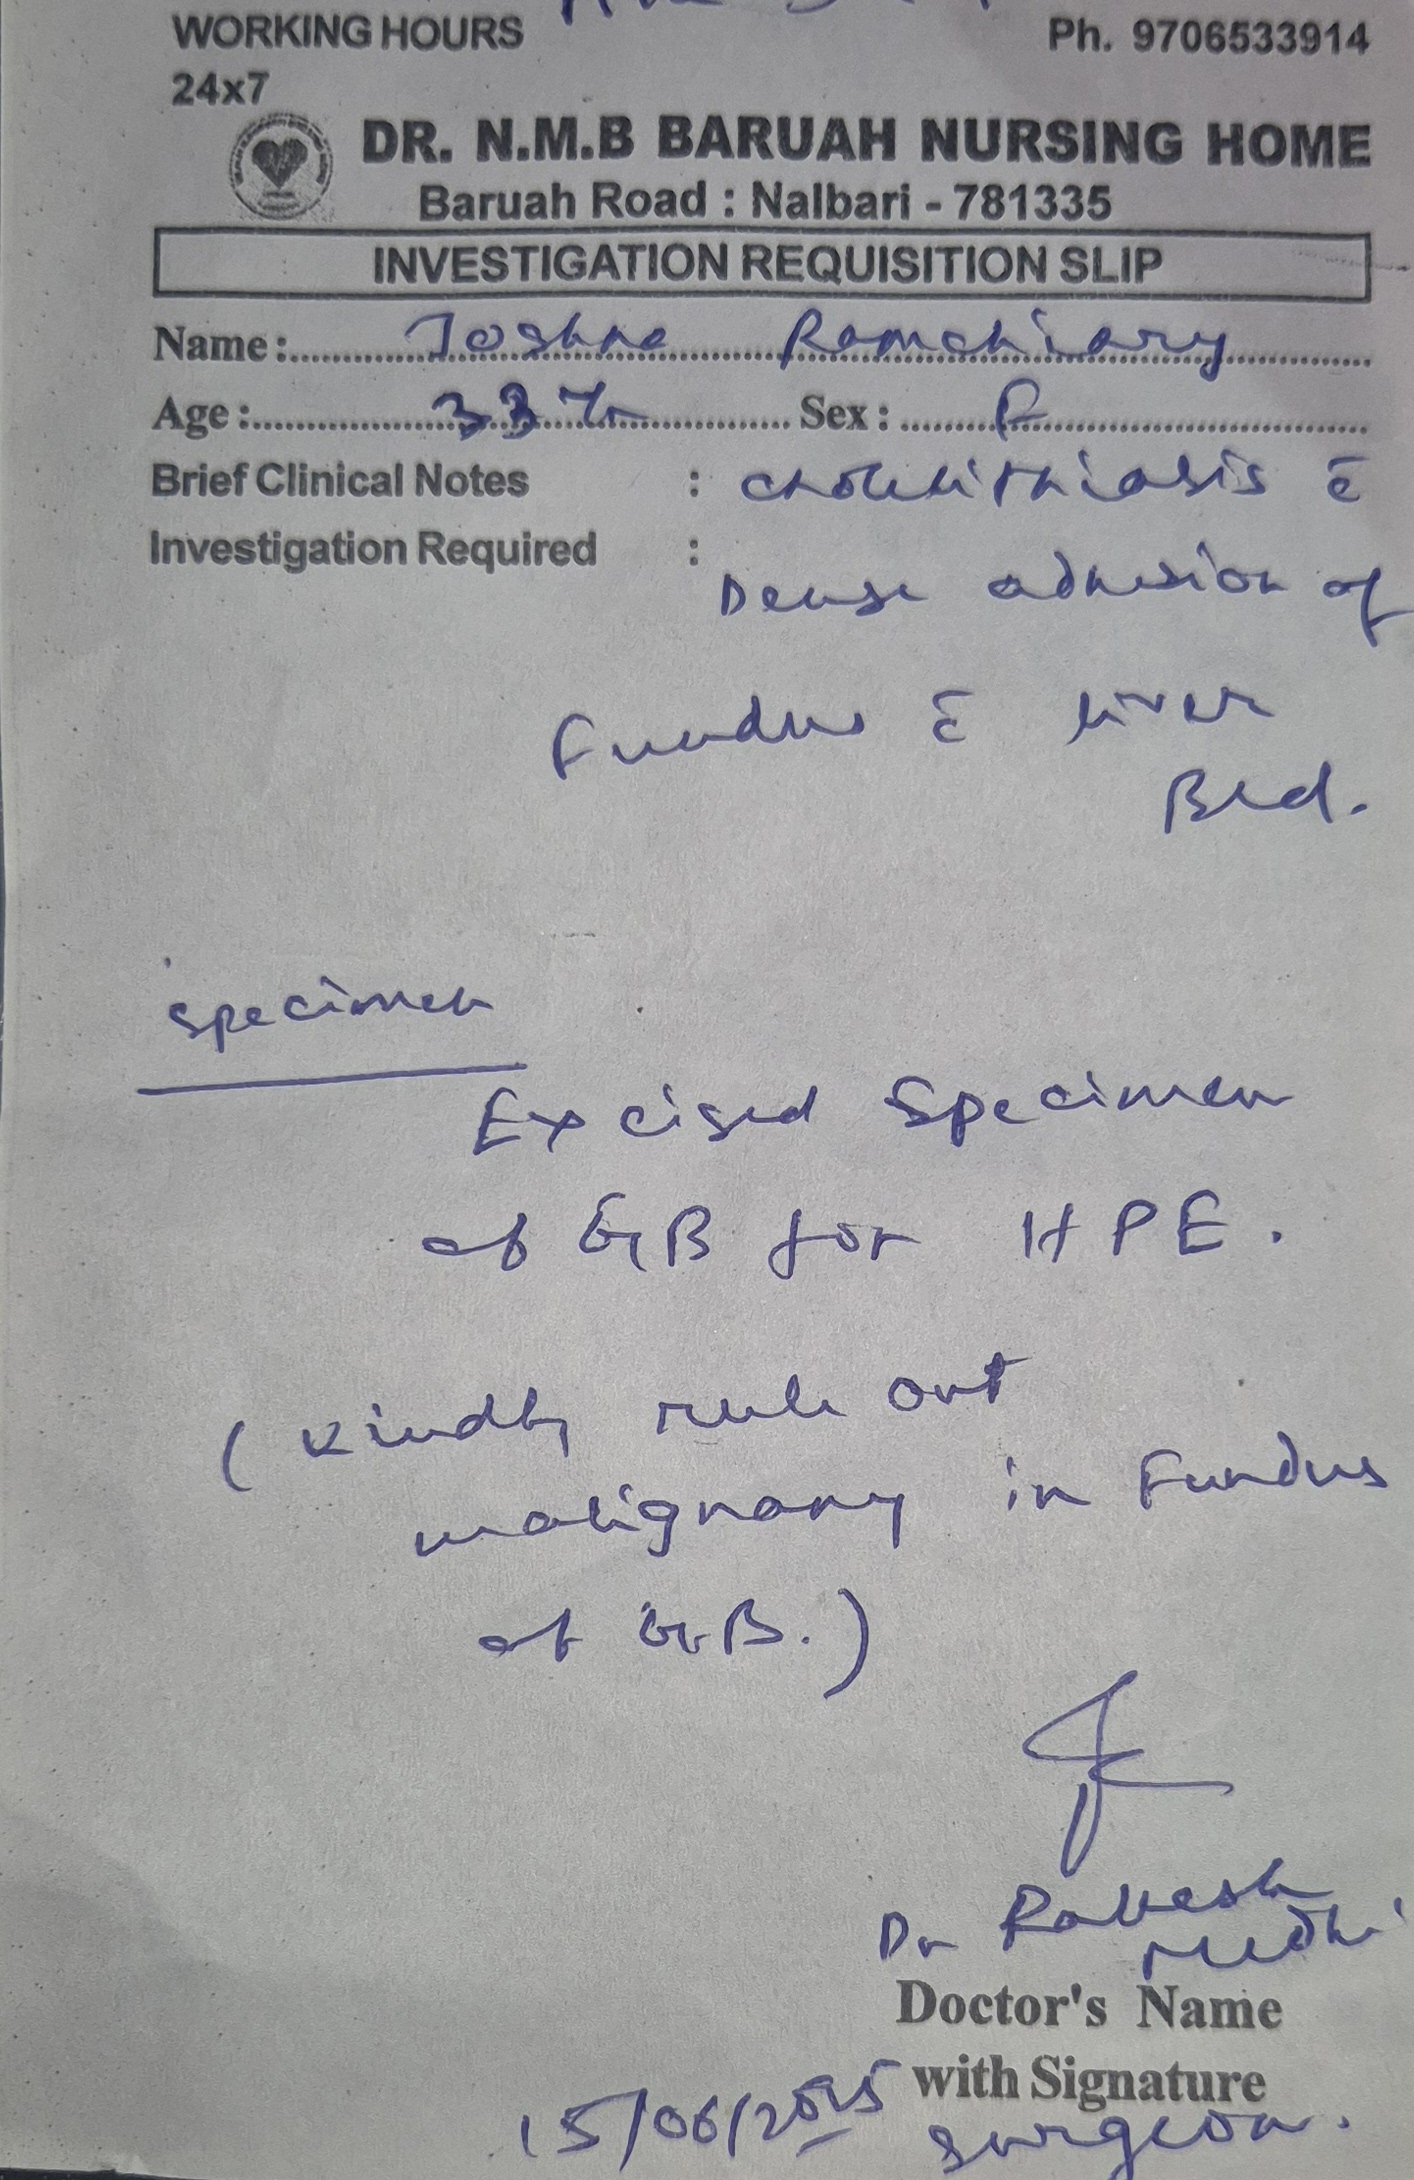 WORKING HOURS Ph. 9706533914
24x7
DR. N.M.B BARUAH NURSING HOME
Baruah Road : Nalbari - 781335
INVESTIGATION REQUISITION SLIP
Name : Joshna Ramchiary
Age : 33 Yr Sex : F
Brief Clinical Notes : Cholelithiasis c̄
Investigation Required :
Dense adhesion of
Fundus c̄ liver
Bed.
Specimen
Excised Specimen
of GB for HPE.
(Kindly rule out
malignancy in Fundus
of GB.)
Dr Rakesh
Medhi
Doctor's Name
with Signature
15/06/2025 Surgeon.